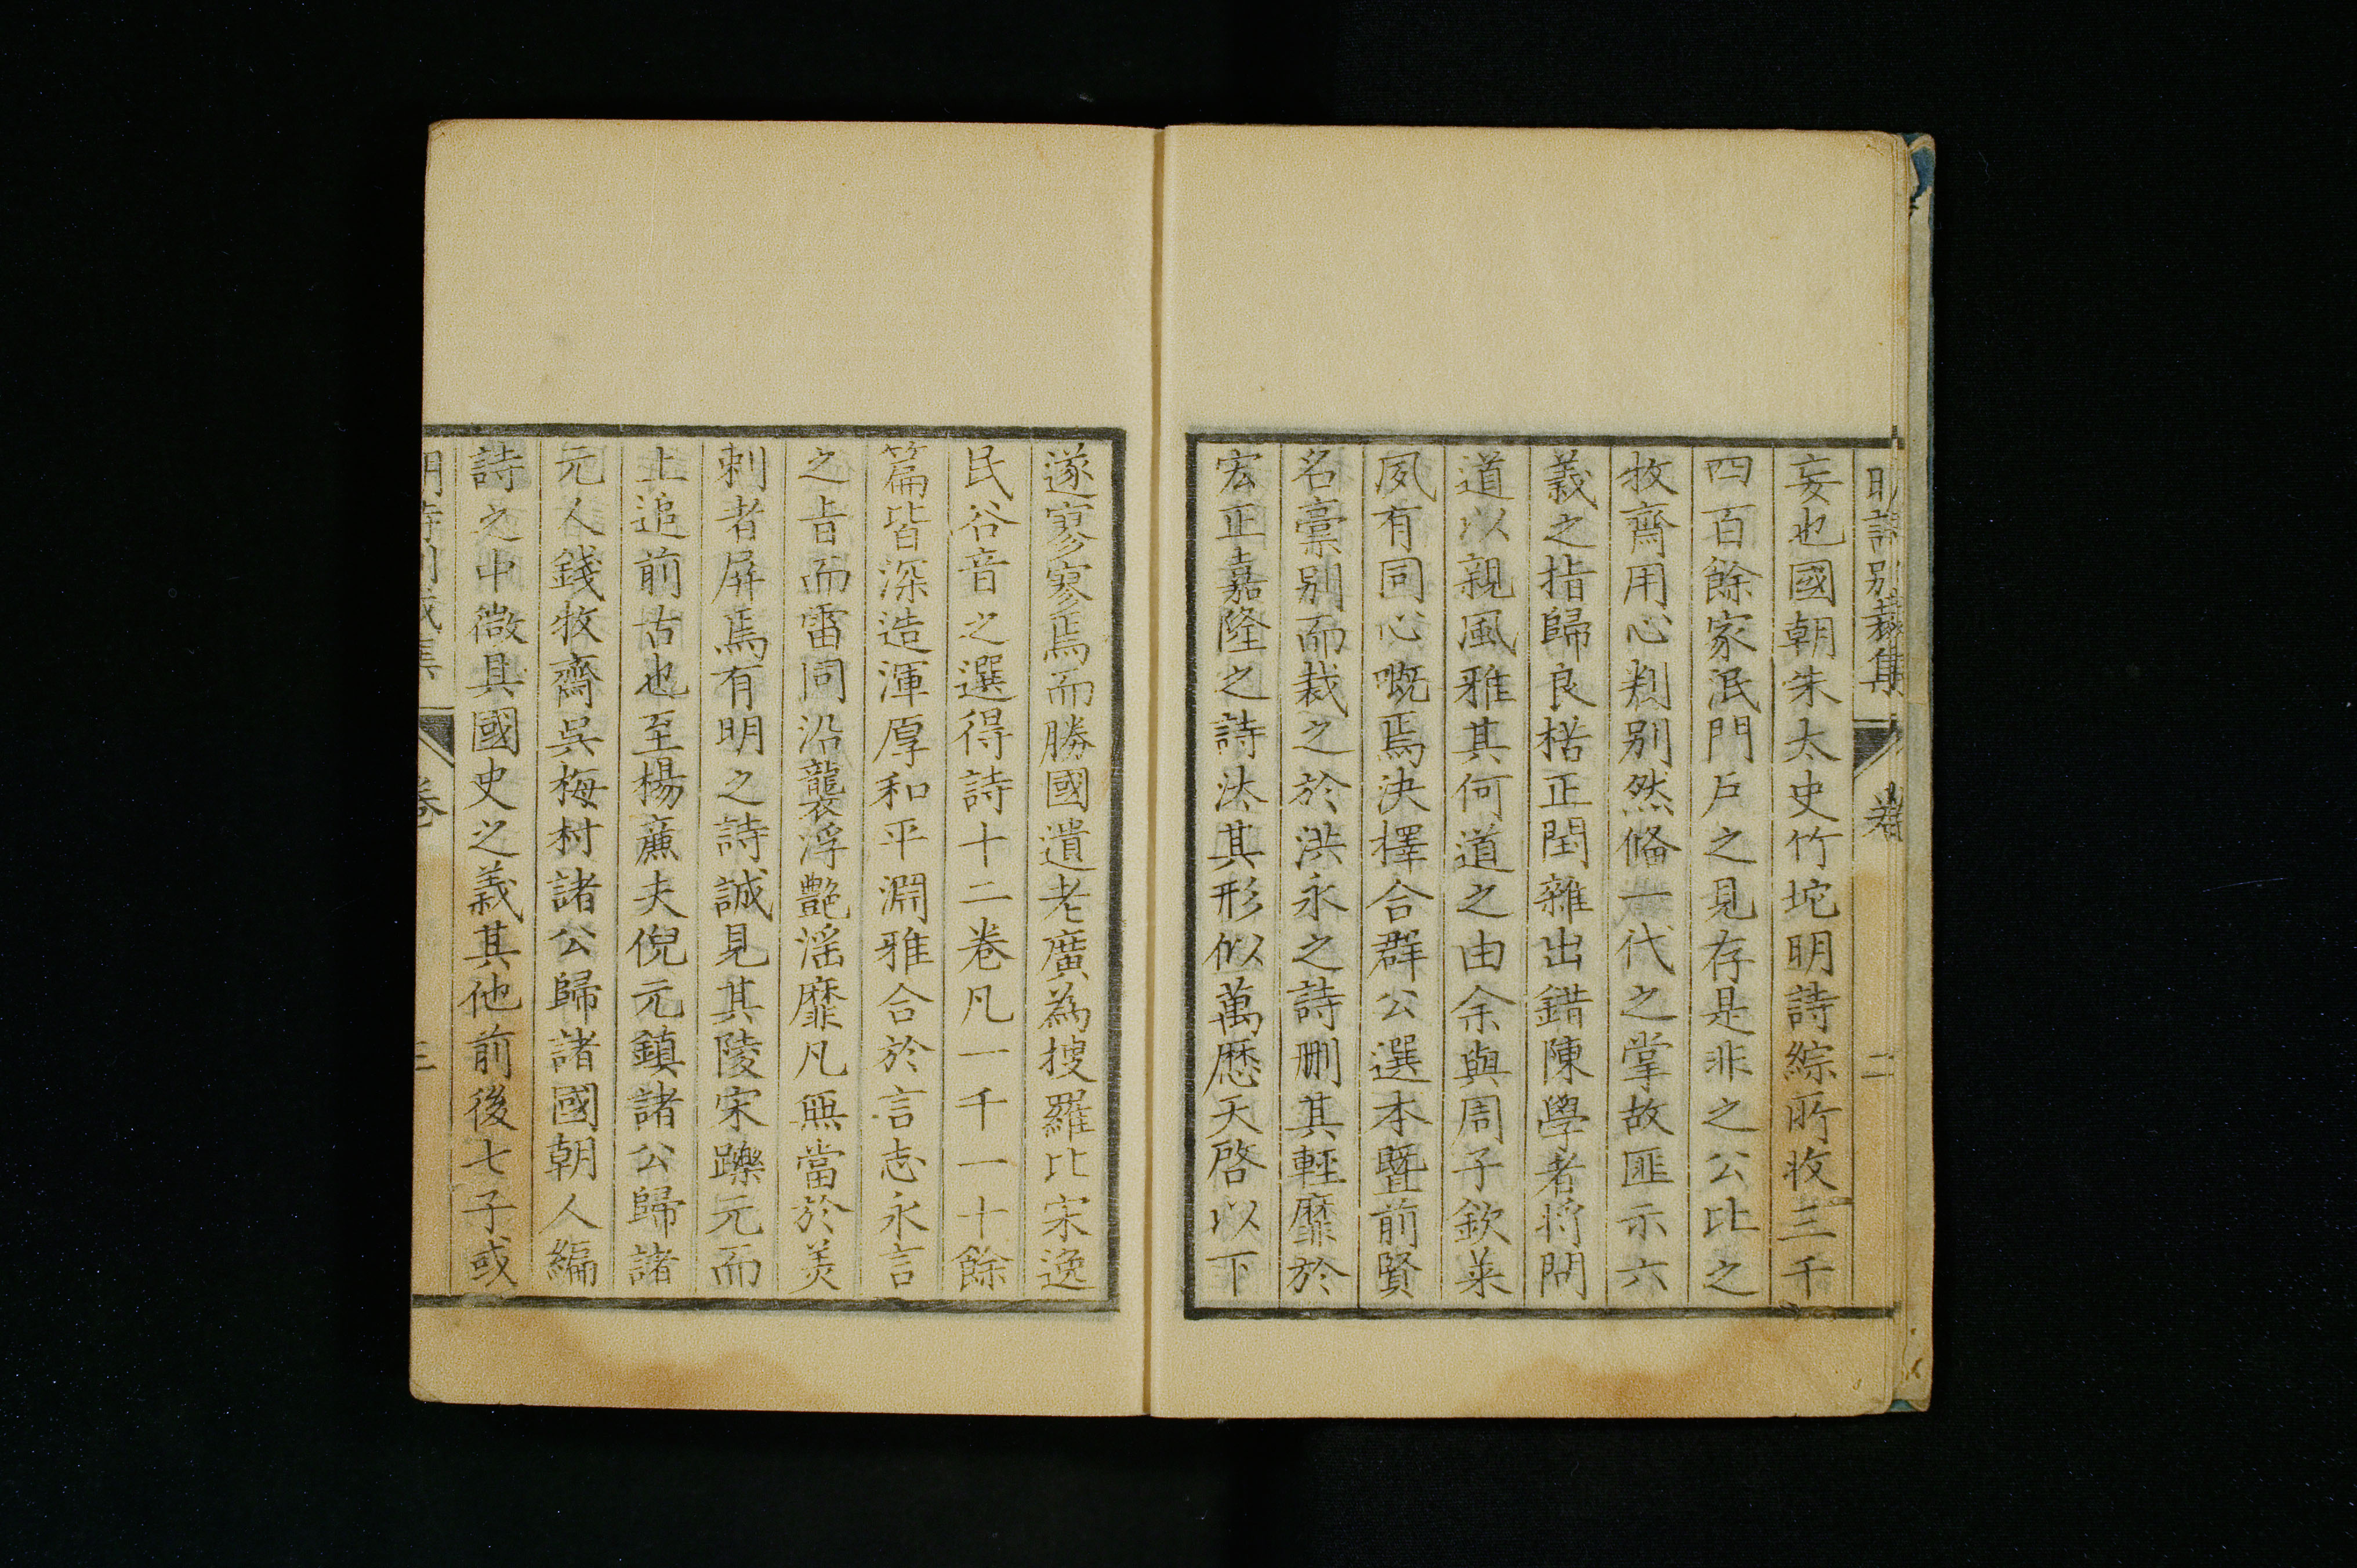 明詩別裁集 卷 二
妄也國朝朱太史竹垞明詩綜所收三千
四百餘家泯門戶之見存是非之公比之
牧齋用心判別然俻一代之掌故匪示六
義之指歸良楛正閏雜出錯陳學者將問
道以親風雅其何道之由余與周子欽萊
夙有同心嘅焉決擇合群公選本曁前賢
名稾別而裁之於洪永之詩刪其輕靡於
宏正嘉隆之詩汰其形似萬歷天啓以下
遂寥寥焉而勝國遺老廣為搜羅比宋逸
民谷音之選得詩十二卷凡一千一十餘
篇皆深造渾厚和平淵雅合於言志永言
之旨而雷同沿襲浮艷淫靡凡無當於美
刺者屏焉有明之詩誠見其陵宋躒元而
上追前古也至楊廉夫倪元鎮諸公歸諸
元人錢牧齋吳梅村諸公歸諸國朝人編
詩之中微具國史之義其他前後七子或
明詩別裁集 卷 三